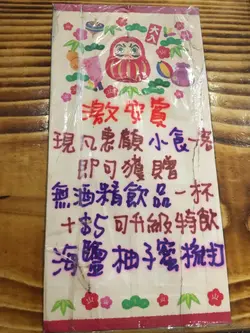 激安賞
現凡惠顧小食一客
即可獲贈
無酒精飲品一杯
+$5可升級特飲
海鹽柚子蜜梳打